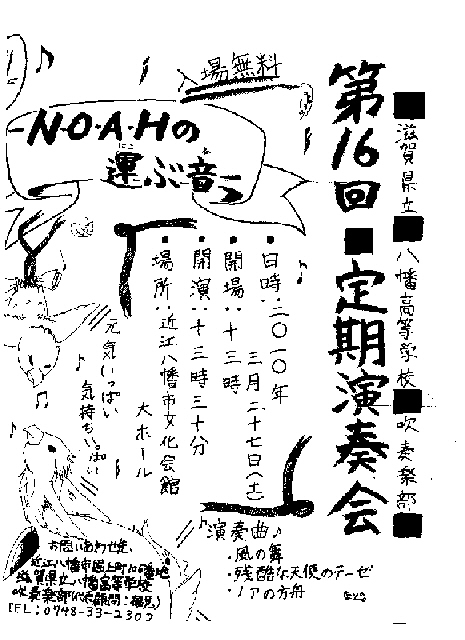 滋賀県立
八幡高等学校
吹奏楽部
第16回
定期演奏会
場無料
-N・O・A・Hの
運ぶ音-
日時:二〇一〇年
三月二十七日(土)
開場:十三時
開演:十三時三十分
場所:近江八幡市文化会館
大ホール
元気いっぱい
気持ちいっぱい
演奏曲♪
・風の舞
・残酷な天使のテーゼ
・ノアの方舟
お問い合わせ先
滋賀県立八幡高等学校
TEL:0748-33-2302